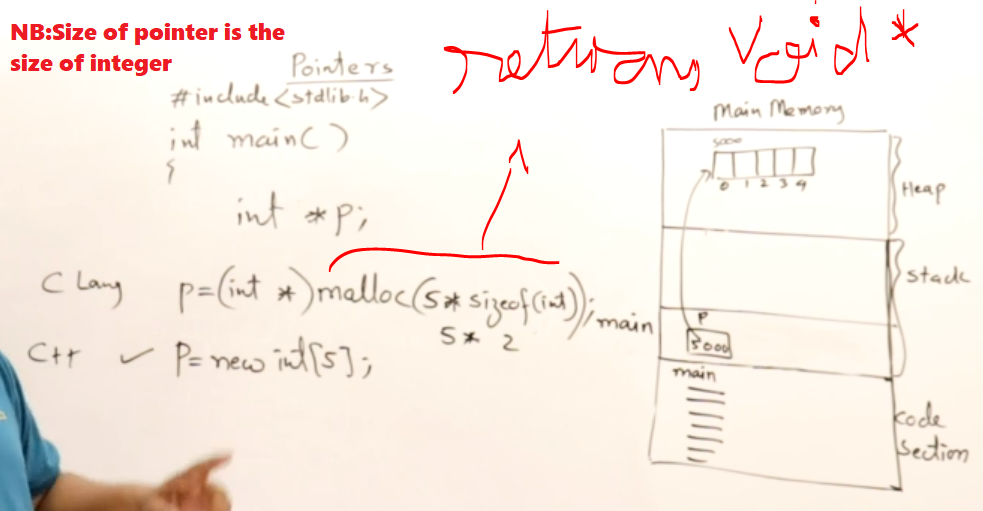 NB:Size of pointer is the
size of integer
returns void *
Pointers
#include<stdlib.h>
int main()
{
int *p;
C Lang p=(int *)malloc(5* sizeof(int));
5* 2
C++ ✓ P=new int[5];
Main Memory
5000
0 1 2 3 4
Heap
Stack
main
P
5000
main
code
section